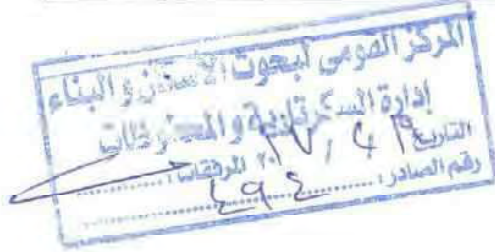 المركز القومى لبحوث الإسكان والبناء
إدارة السكرتارية والمحفوظات
التاريخ ٢٠١٧ المرفقات:
رقم الصادر: ٤٩٤